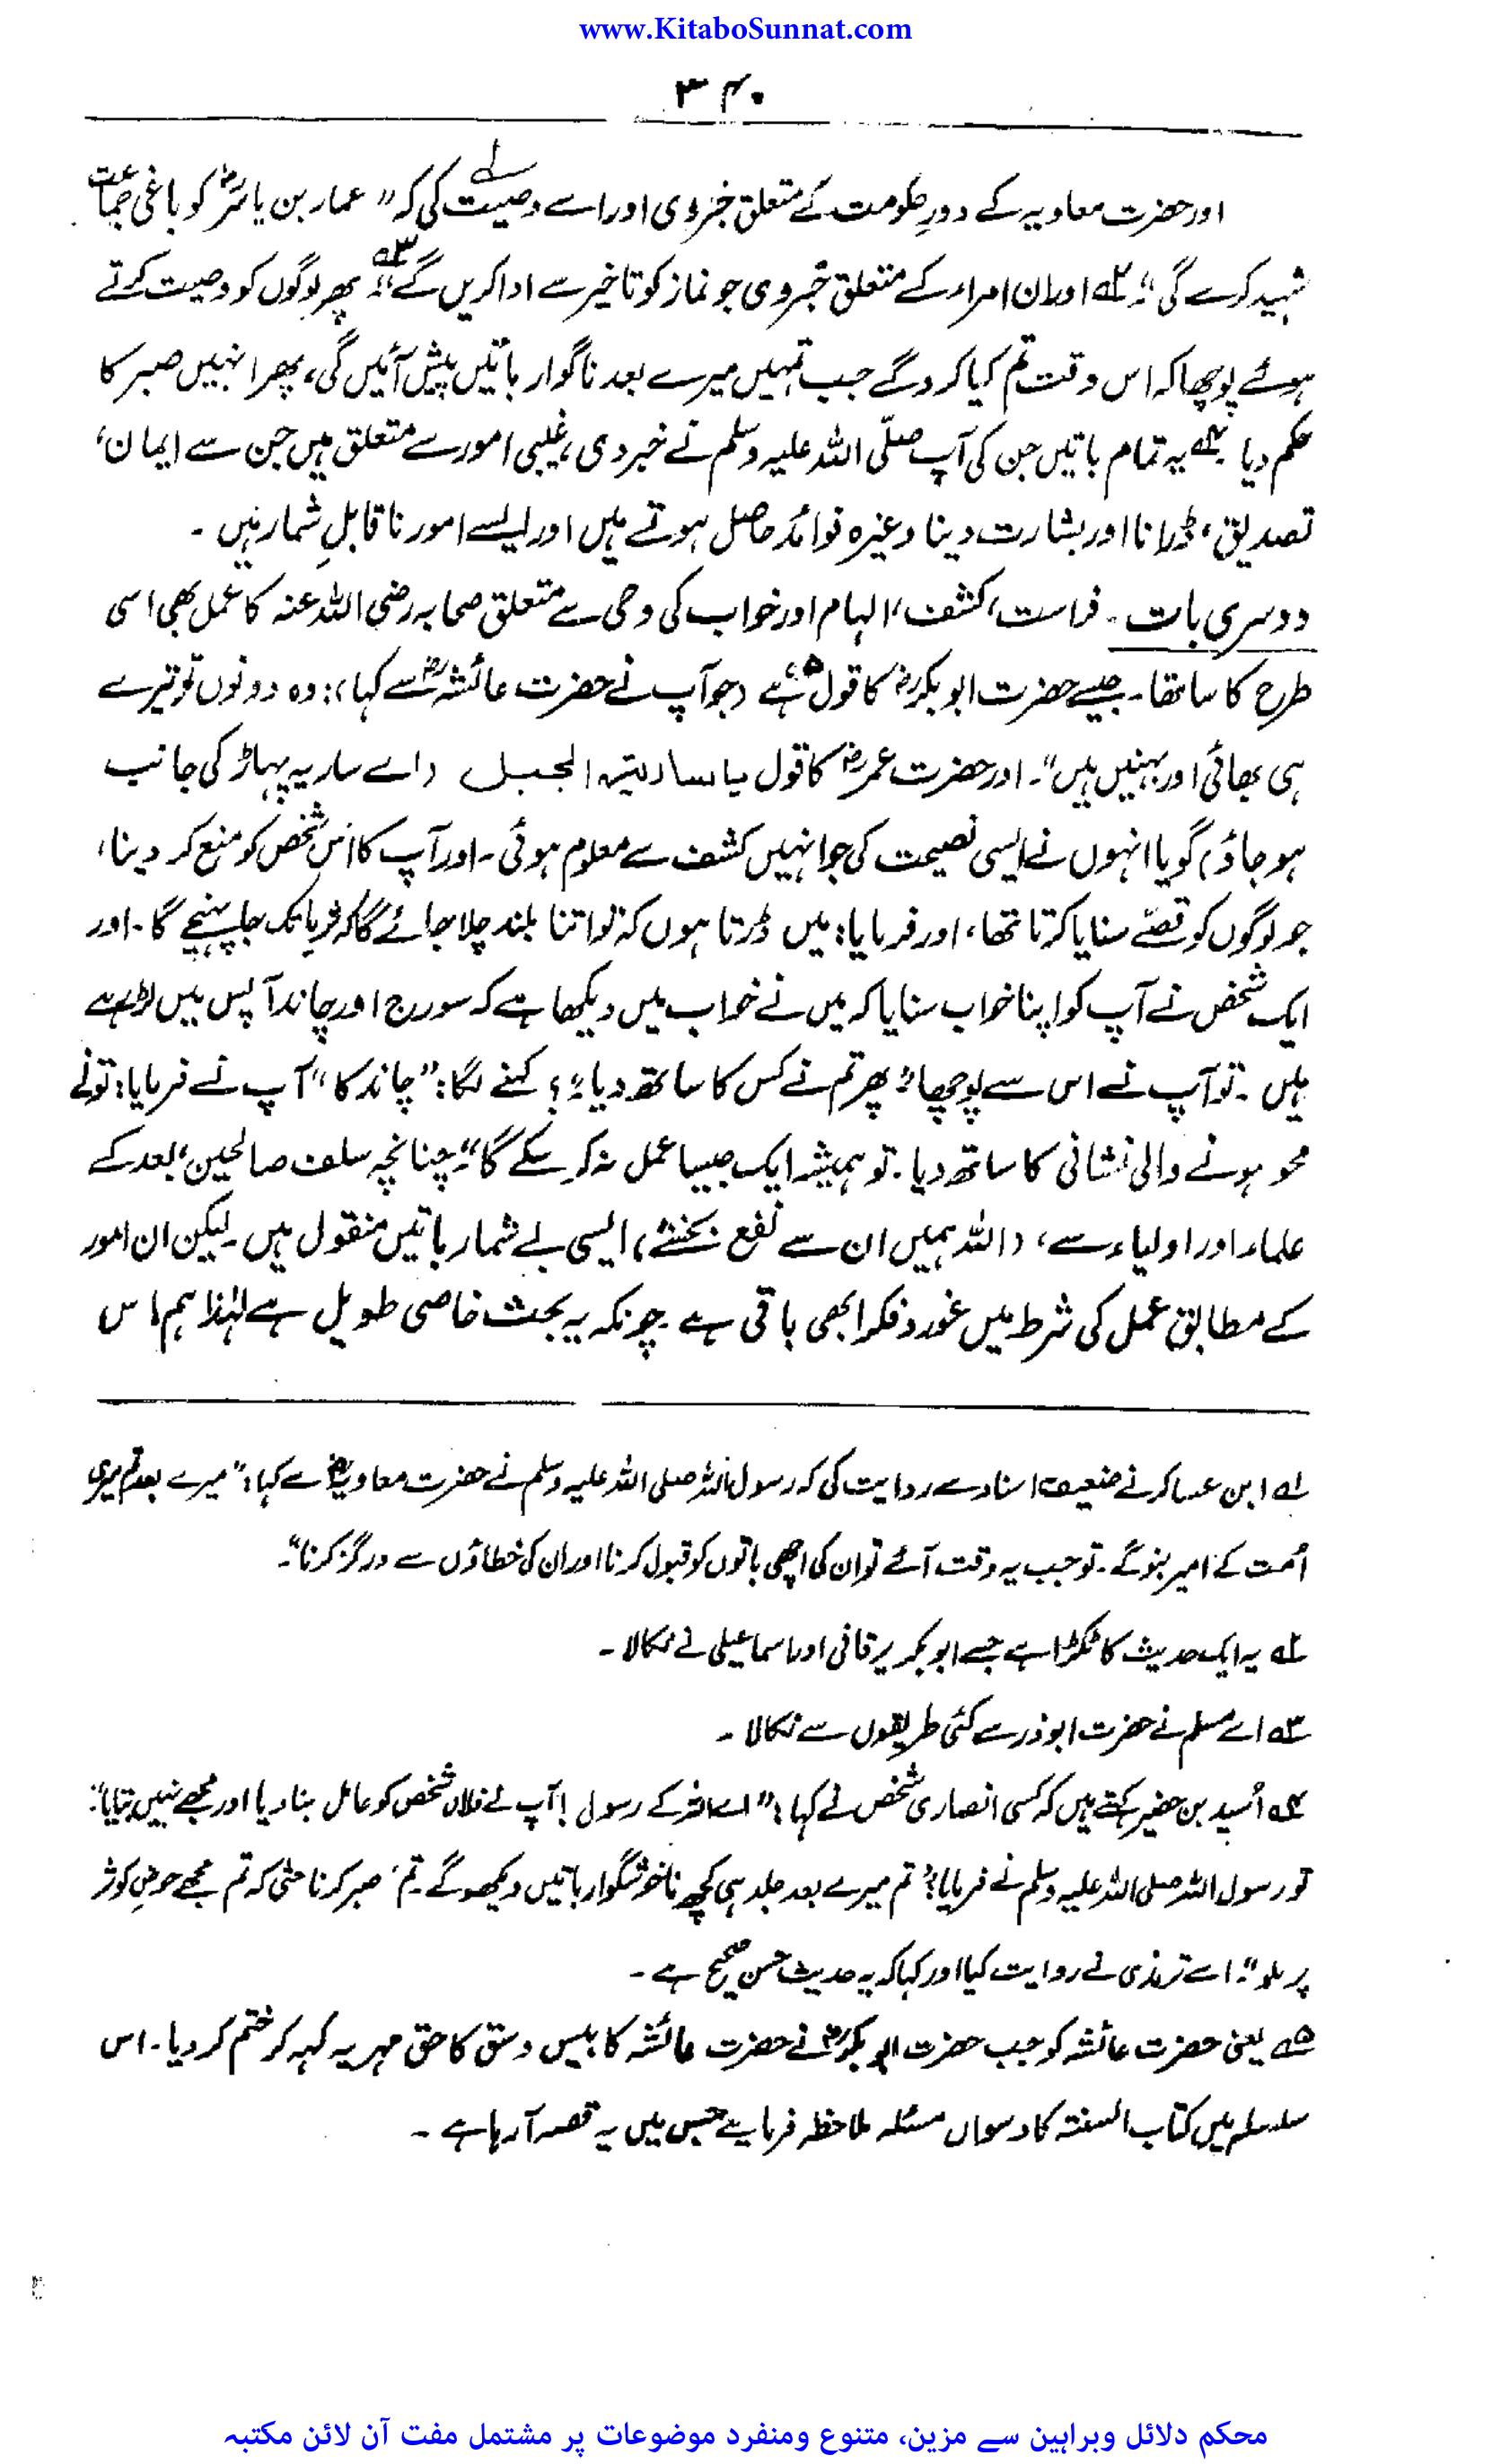 www.KitaboSunnat.com
۳۴۰
اور حضرت معاویہ کے دورِ حکومت کے متعلق خبر دی اور اسے وصیت کی لہ کہ ”عمار بن یاسرؓ کو باغی جماعت
شہید کرے گی“۔ ۲ہ اور ان امراء کے متعلق خبر دی جو نماز کو تاخیر سے ادا کریں گے“۔ ۳ہ پھر لوگوں کو وصیت کرتے
ہوئے پوچھا کہ اس وقت تم کیا کرو گے جب تمہیں میرے بعد ناگوار باتیں پیش آئیں گی، پھر انہیں صبر کا
حکم دیا ۴ہ یہ تمام باتیں جن کی آپ صلّی اللہ علیہ وسلم نے خبر دی، غیبی امور سے متعلق ہیں جن سے ایمان،
تصدیق، ڈرانا اور بشارت دینا وغیرہ فوائد حاصل ہوتے ہیں اور ایسے امور ناقابلِ شمار ہیں۔
دوسری بات۔ فراست، کشف، الہام اور خواب کی وحی سے متعلق صحابہ رضی اللہ عنہ کا عمل بھی اسی
طرح کا سا تھا۔ جیسے حضرت ابو بکرؓ کا قول ۵ہ ہے (جو آپ نے حضرت عائشہؓ سے کہا): وہ دونوں تو تیرے
ہی بھائی اور بہنیں ہیں“۔ اور حضرت عمرؓ کا قول یا ساریۃ الجبل (اے ساریہ پہاڑ کی جانب
ہو جاؤ) گویا انہوں نے ایسی نصیحت کی جو انہیں کشف سے معلوم ہوئی۔ اور آپ کا اس شخص کو منع کر دینا،
جو لوگوں کو قصّے سنایا کرتا تھا، اور فرمایا: میں ڈرتا ہوں کہ تو اتنا بلند چلا جائے گا کہ ثریا تک جا پہنچے گا۔ اور
ایک شخص نے آپ کو اپنا خواب سنایا کہ میں نے خواب میں دیکھا ہے کہ سورج اور چاند آپس میں لڑ رہے
ہیں۔ تو آپ نے اس سے پوچھا ”پھر تم نے کس کا ساتھ دیا“؟ کہنے لگا: ”چاند کا“ آپ نے فرمایا: تو نے
محو ہونے والی نشانی کا ساتھ دیا۔ تو ہمیشہ ایک جیسا عمل نہ کر سکے گا“۔ چنانچہ سلف صالحین، بعد کے
علماء اور اولیاء سے، (اللہ ہمیں ان سے نفع بخشے) ایسی بے شمار باتیں منقول ہیں۔ لیکن ان امور
کے مطابق عمل کی شرط میں غور و فکر ابھی باقی ہے۔ چونکہ یہ بحث خاصی طویل ہے لہٰذا ہم اس
۱ہ ابن عساکر نے ضعیف اسناد سے روایت کی کہ رسول اللہ صلی اللہ علیہ وسلم نے حضرت معاویہؓ سے کہا: ”میرے بعد تم میری
اُمت کے امیر بنو گے۔ تو جب یہ وقت آئے تو ان کی اچھی باتوں کو قبول کرنا اور ان کی خطاؤں سے درگزر کرنا“۔
۲ہ یہ ایک حدیث کا ٹکڑا ہے جسے ابو بکر برقانی اور اسماعیلی نے نکالا۔
۳ہ اسے مسلم نے حضرت ابوذر سے کئی طریقوں سے نکالا۔
۴ہ اُسید بن حضیر کہتے ہیں کہ کسی انصاری شخص نے کہا: ”اے اللہ کے رسول! آپ نے فلاں شخص کو عامل بنا دیا اور مجھے نہیں بنایا“۔
تو رسول اللہ صلی اللہ علیہ وسلم نے فرمایا: ”تم میرے بعد جلد ہی کچھ ناخوشگوار باتیں دیکھو گے۔ تم صبر کرنا حتیٰ کہ تم مجھے حوضِ کوثر
پر ملو“۔ اسے ترمذی نے روایت کیا اور کہا کہ یہ حدیث حسن صحیح ہے۔
۵ہ یعنی حضرت عائشہ کو جب حضرت ابو بکرؓ نے حضرت عائشہ کا بیس وسق کا حق مہر یہ کہہ کر ختم کر دیا۔ اس
سلسلہ میں کتاب السنۃ کا دسواں مسئلہ ملاحظہ فرمایئے جس میں یہ قصہ آ رہا ہے۔
محکم دلائل وبراہین سے مزین، متنوع ومنفرد موضوعات پر مشتمل مفت آن لائن مکتبہ